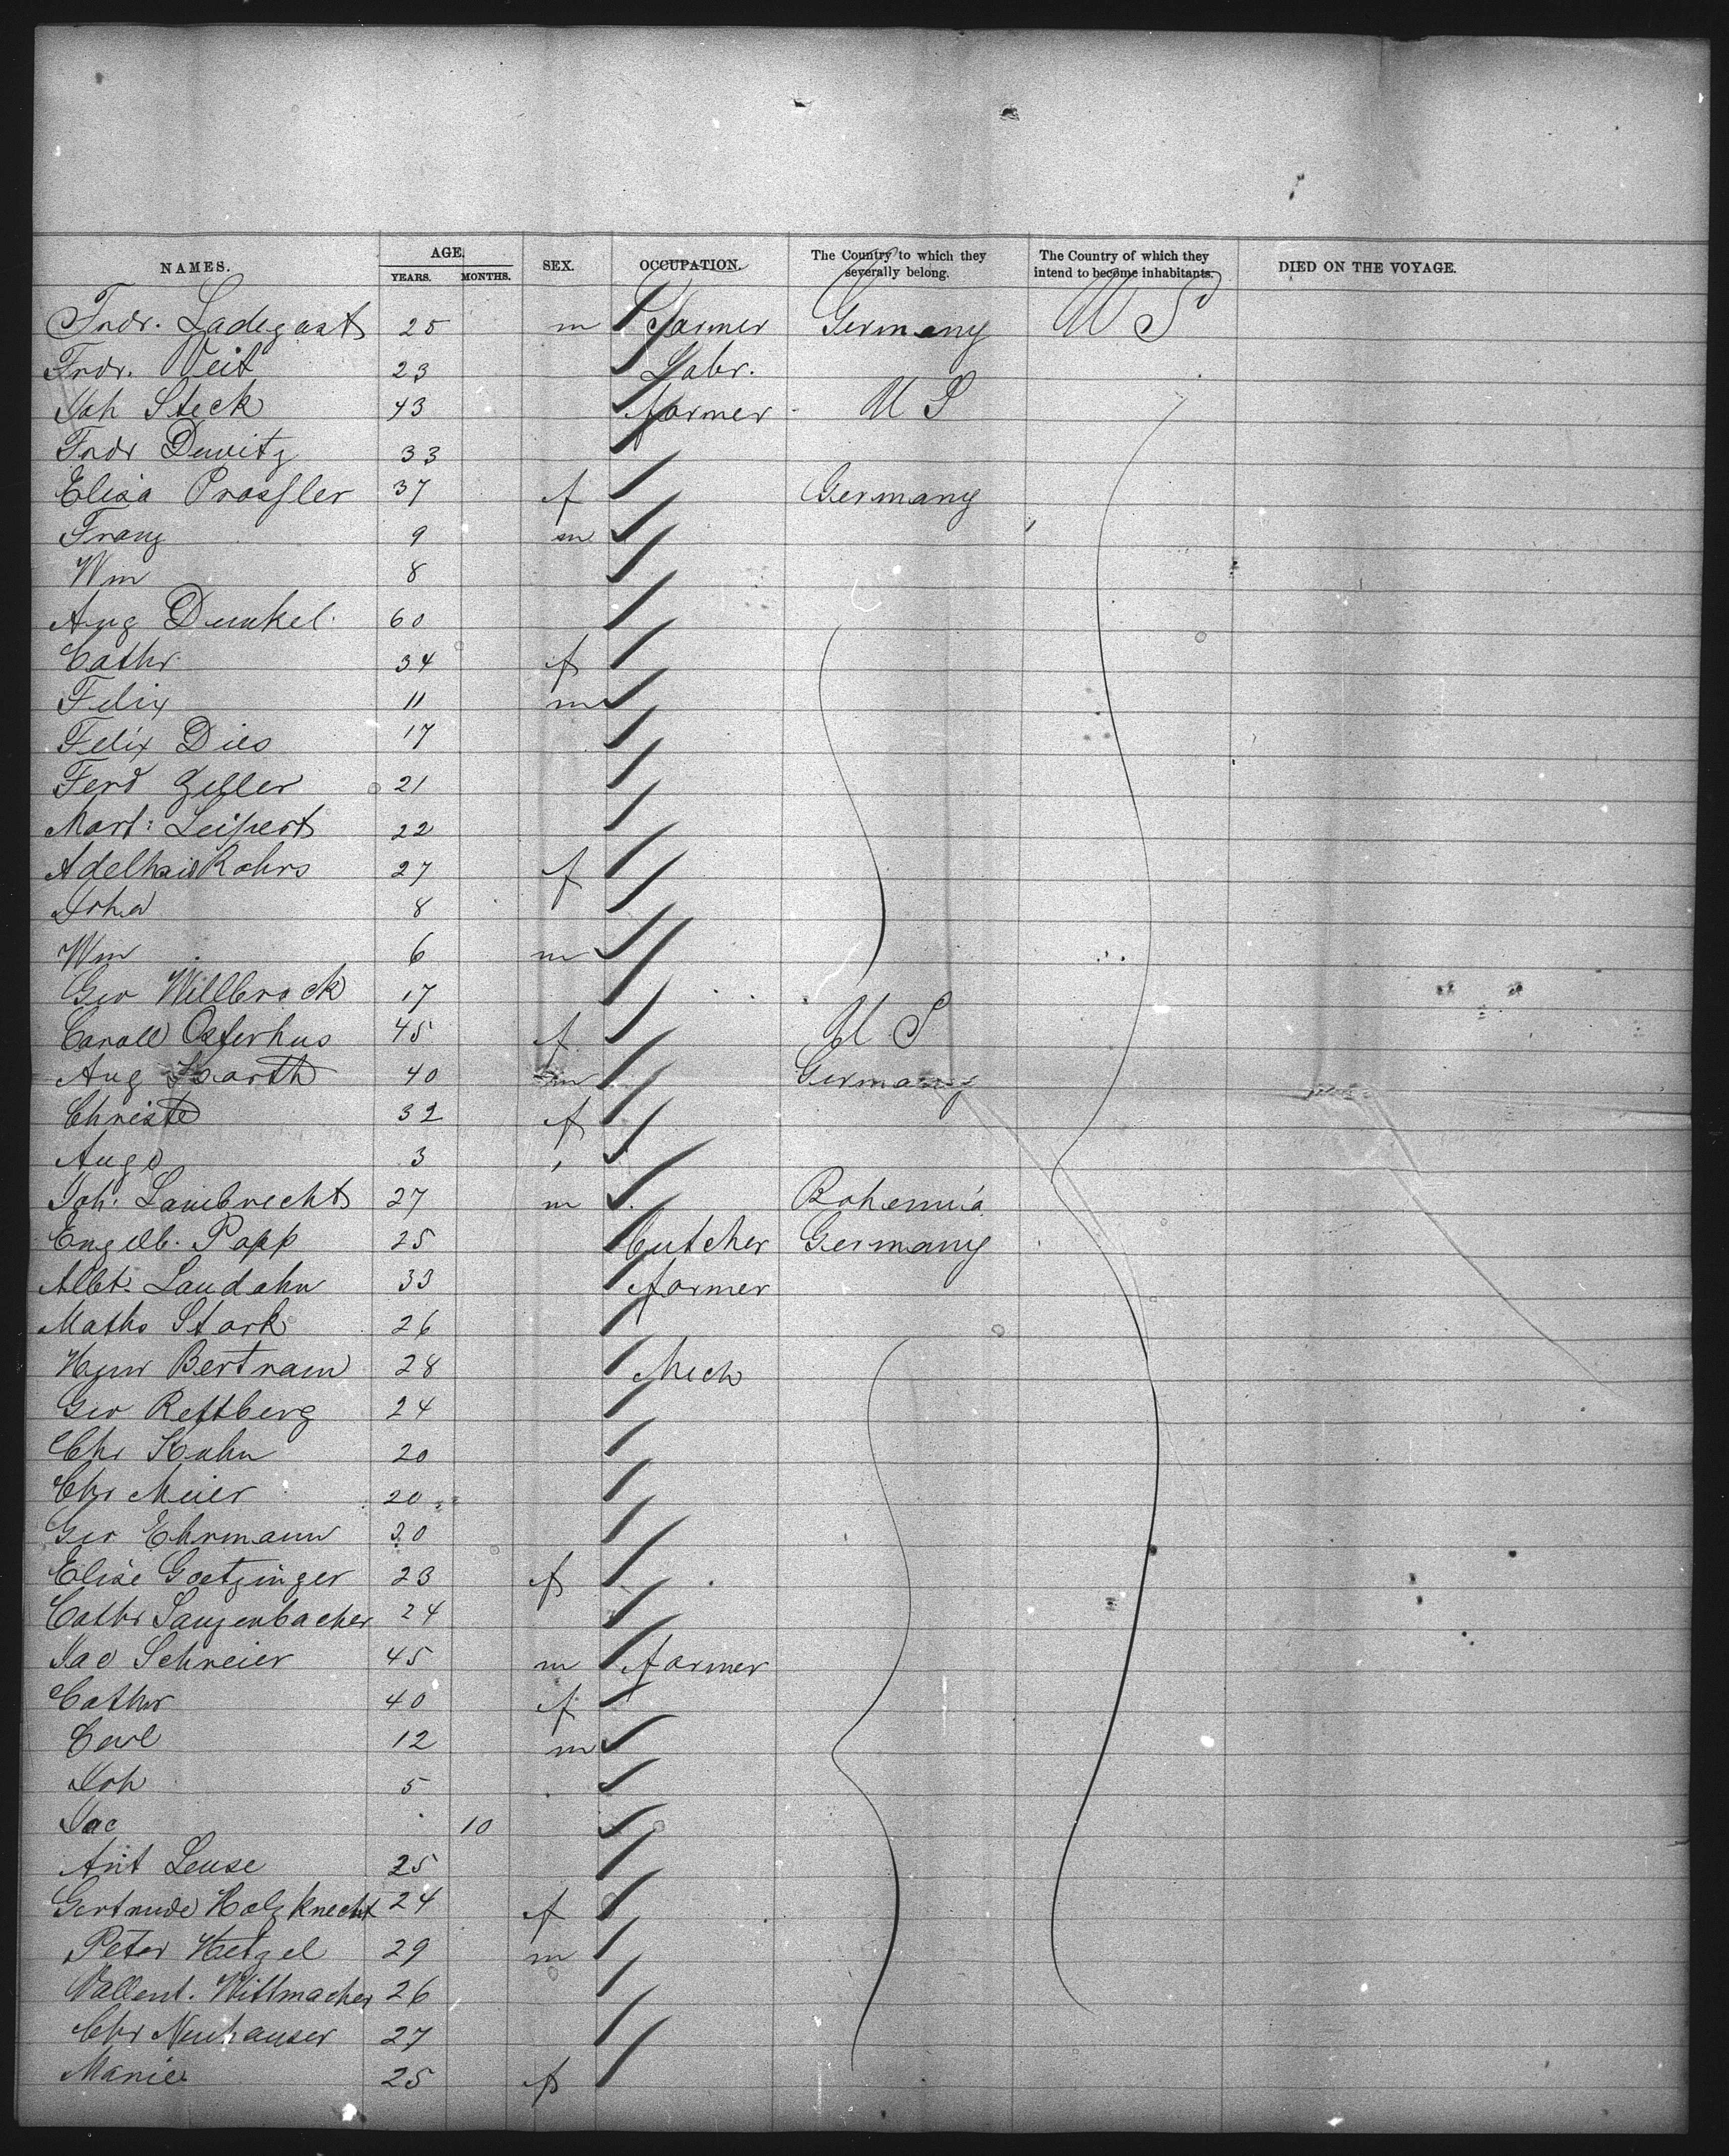 NAMES. AGE. YEARS. MONTHS. SEX. OCCUPATION. The Country to which they severally belong. The Country of which they intend to become inhabitants. DIED ON THE VOYAGE.
Fredr. Ladegast 25 m Farmer Germany U S
Fredr. Veit 23 Labr.
Joh Steck 43 farmer U S
Fredr Dewitz 33
Elisa Prassler 37 f Germany
Franz 9 m
Wm 8
Aug Dunkel 60
Cathr 34 f
Felix 11 m
Felix Dies 17
Ferd Zeller 21
Mart: Leipert 22
Adelhaid Rohrs 27 f
Joha 8
Wm 6 m
Geo Willbrock 17
Caroll Osterhus 45 f U S
Aug 40 m Germany
Christe 32 f
Auge 3
Joh. Lambrecht 27 m Bohemia
Engelb. Papp 25 butcher Germany
Albt. Landahn 33 farmer
Maths Stark 26
Hynr Bertram 28 Mech
Geo Rettberg 24
Chr Kuhn 20
Chr Meier 20
Geo Ehrmann 20
Elise Goetzinger 23 f
Cathr Sanzenbacher 24
Jac Schreier 45 m farmer
Cathr 40 f
Carl 12 m
Joh 5
Jac 10
Ant Leuse 25
Gertrude Holzknecht 24 f
Peter Hetzel 29 m
Vallent. Wittmacher 26
Chr Neuhauser 27
Marie 25 f